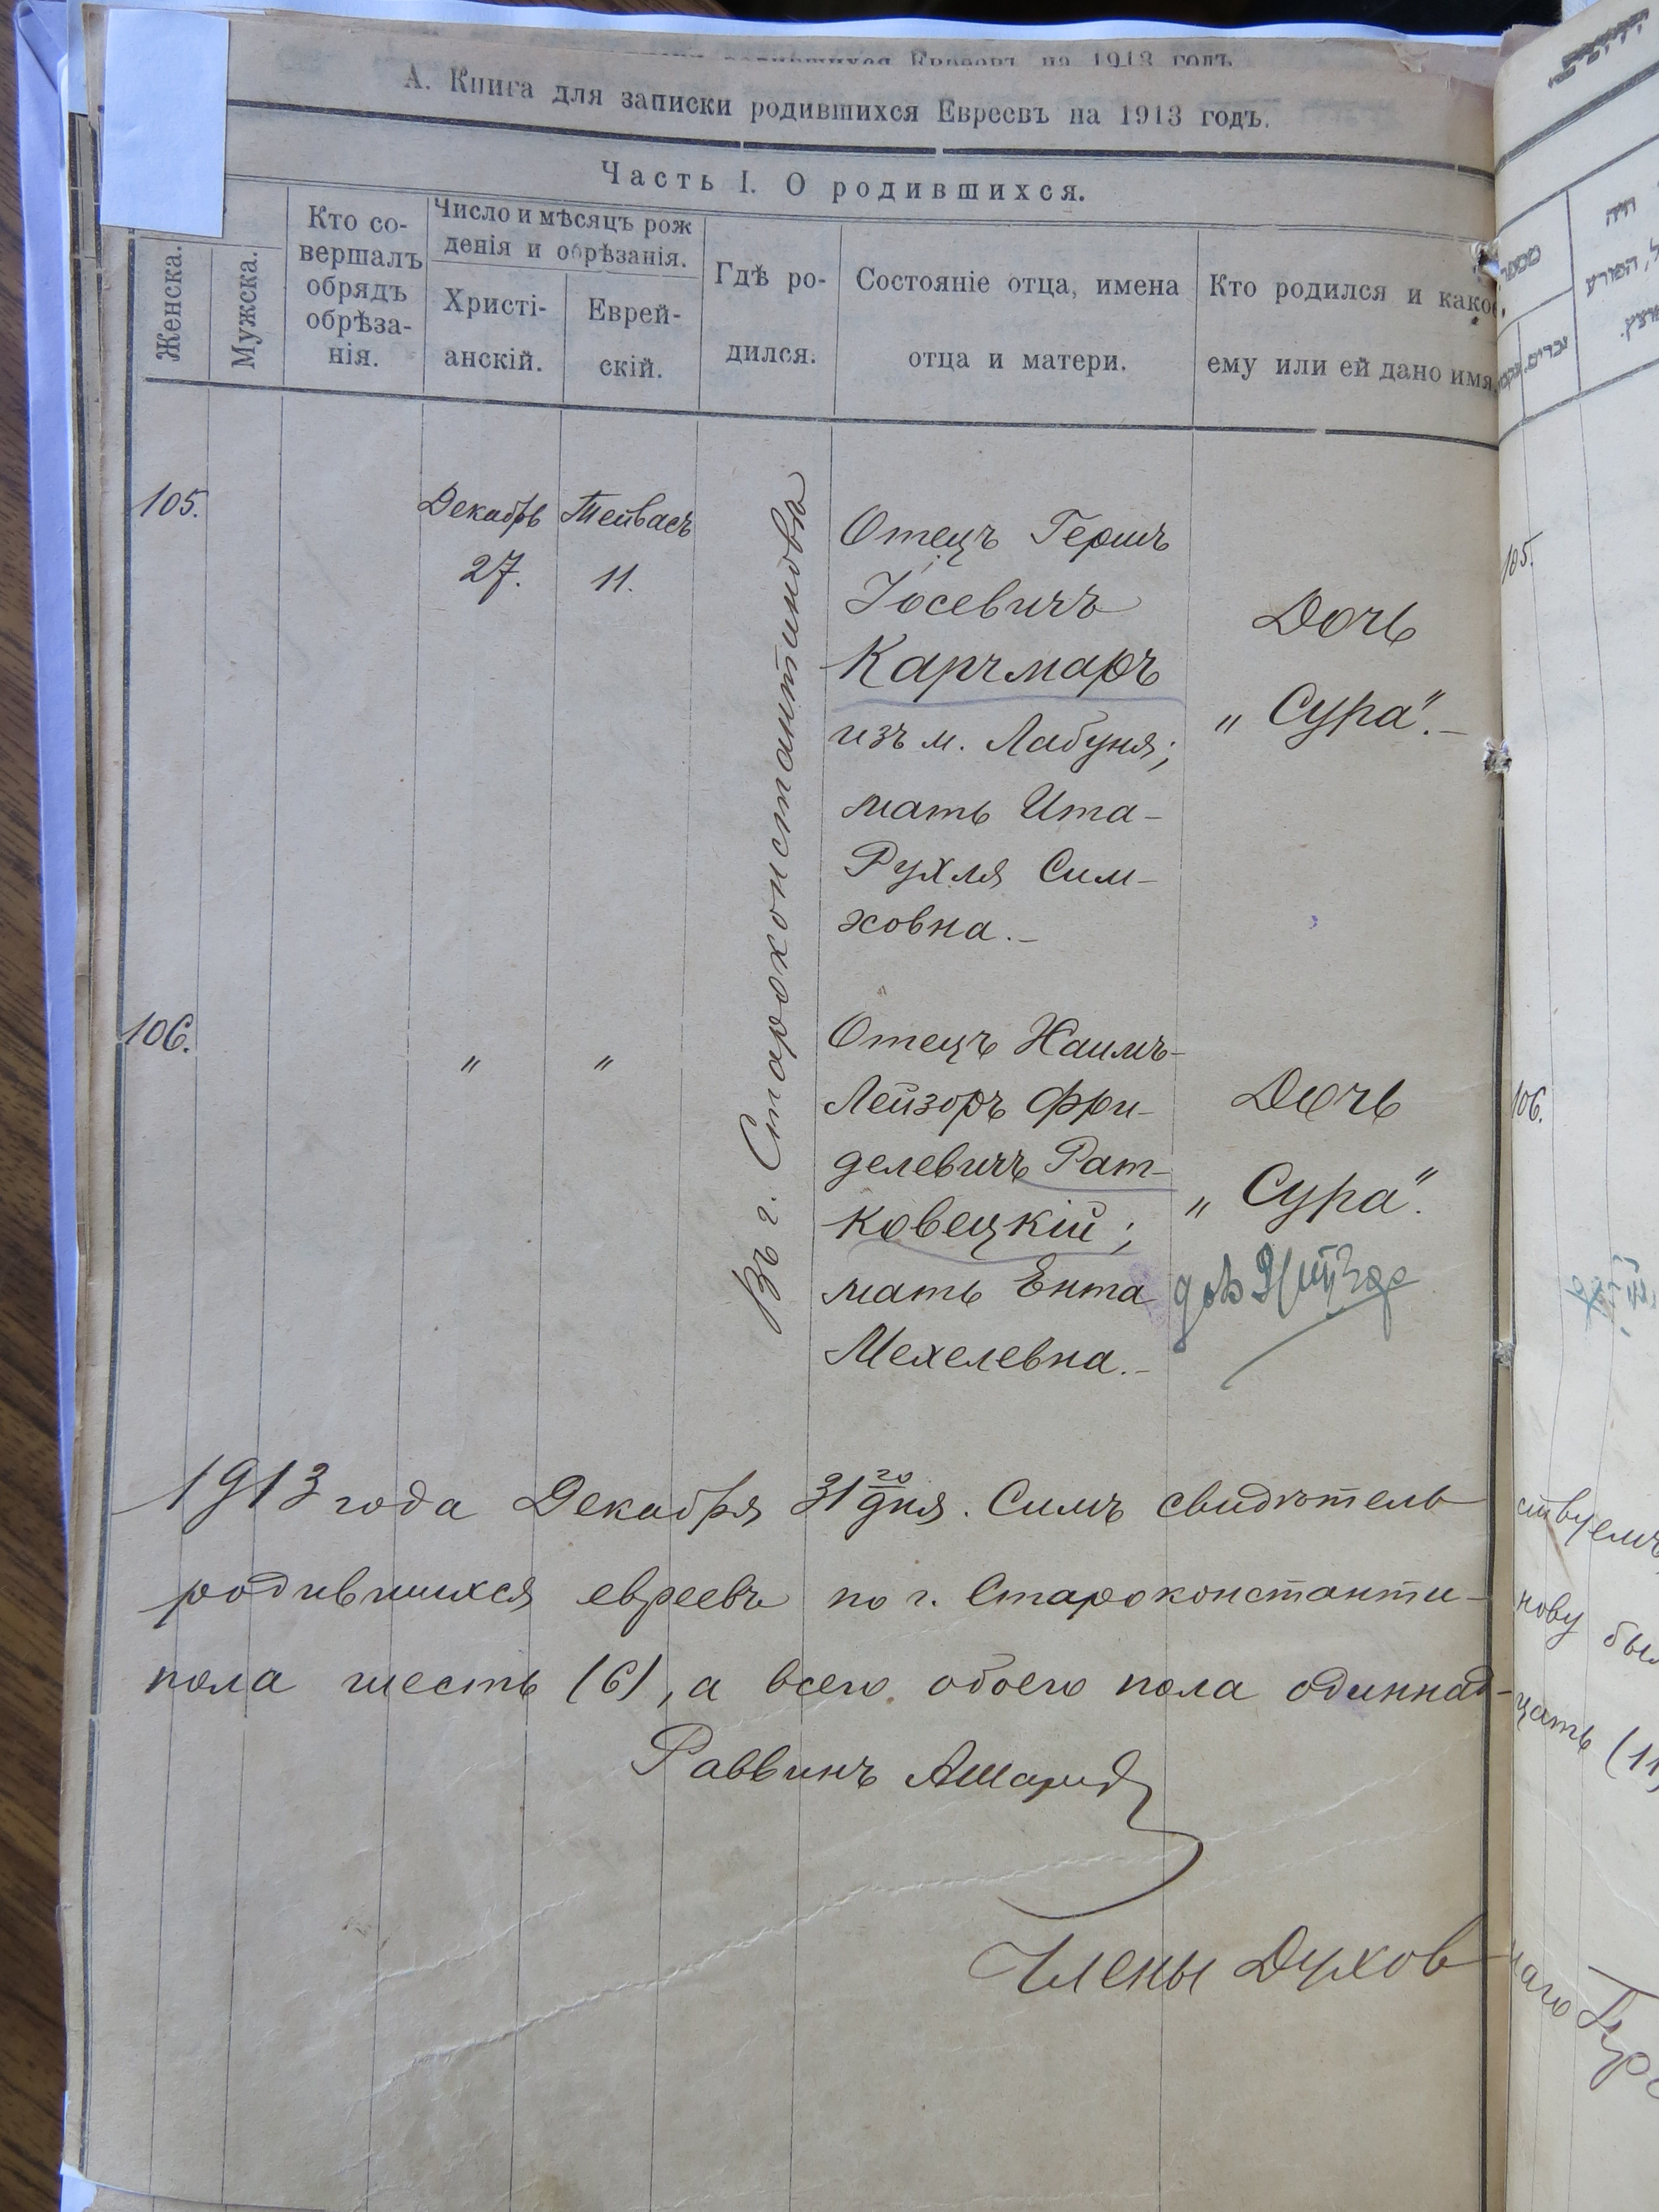 А. Книга для записки родившихся Евреевъ на 1913 годъ.
Часть I. О родившихся.
Женска.
Мужска.
Кто со-
вершалъ
обрядъ
обрѣза-
нія.
Число и мѣсяцъ рож
денія и обрѣзанія.
Христі-
анскій.
Еврей-
скій.
Гдѣ ро-
дился.
Состояніе отца, имена
отца и матери.
Кто родился и какое
ему или ей дано имя.
105.
Декабрь
27.
Тейвасъ
11.
Въ г. Староконстантиновѣ
Отецъ Гершъ
Іосевичъ
Карчмаръ
изъ м. Лабуня;
мать Ита-
Рухля Сим-
ховна.-
Дочь
„Сура".-
105.
106.
"
"
Отецъ Хаимъ-
Лейзоръ Фри-
делевичъ Рат-
ковецкій;
мать Ента
Мехелевна.-
Дочь
„Сура".
106.
1913 года Декабря 31го дня. Симъ свидѣтель ствуемъ
родившихся евреевъ по г. Староконстанти- нову
пола шесть (6), а всего обоего пола одиннад- цать (11)
Раввинъ
Члены Духов наго